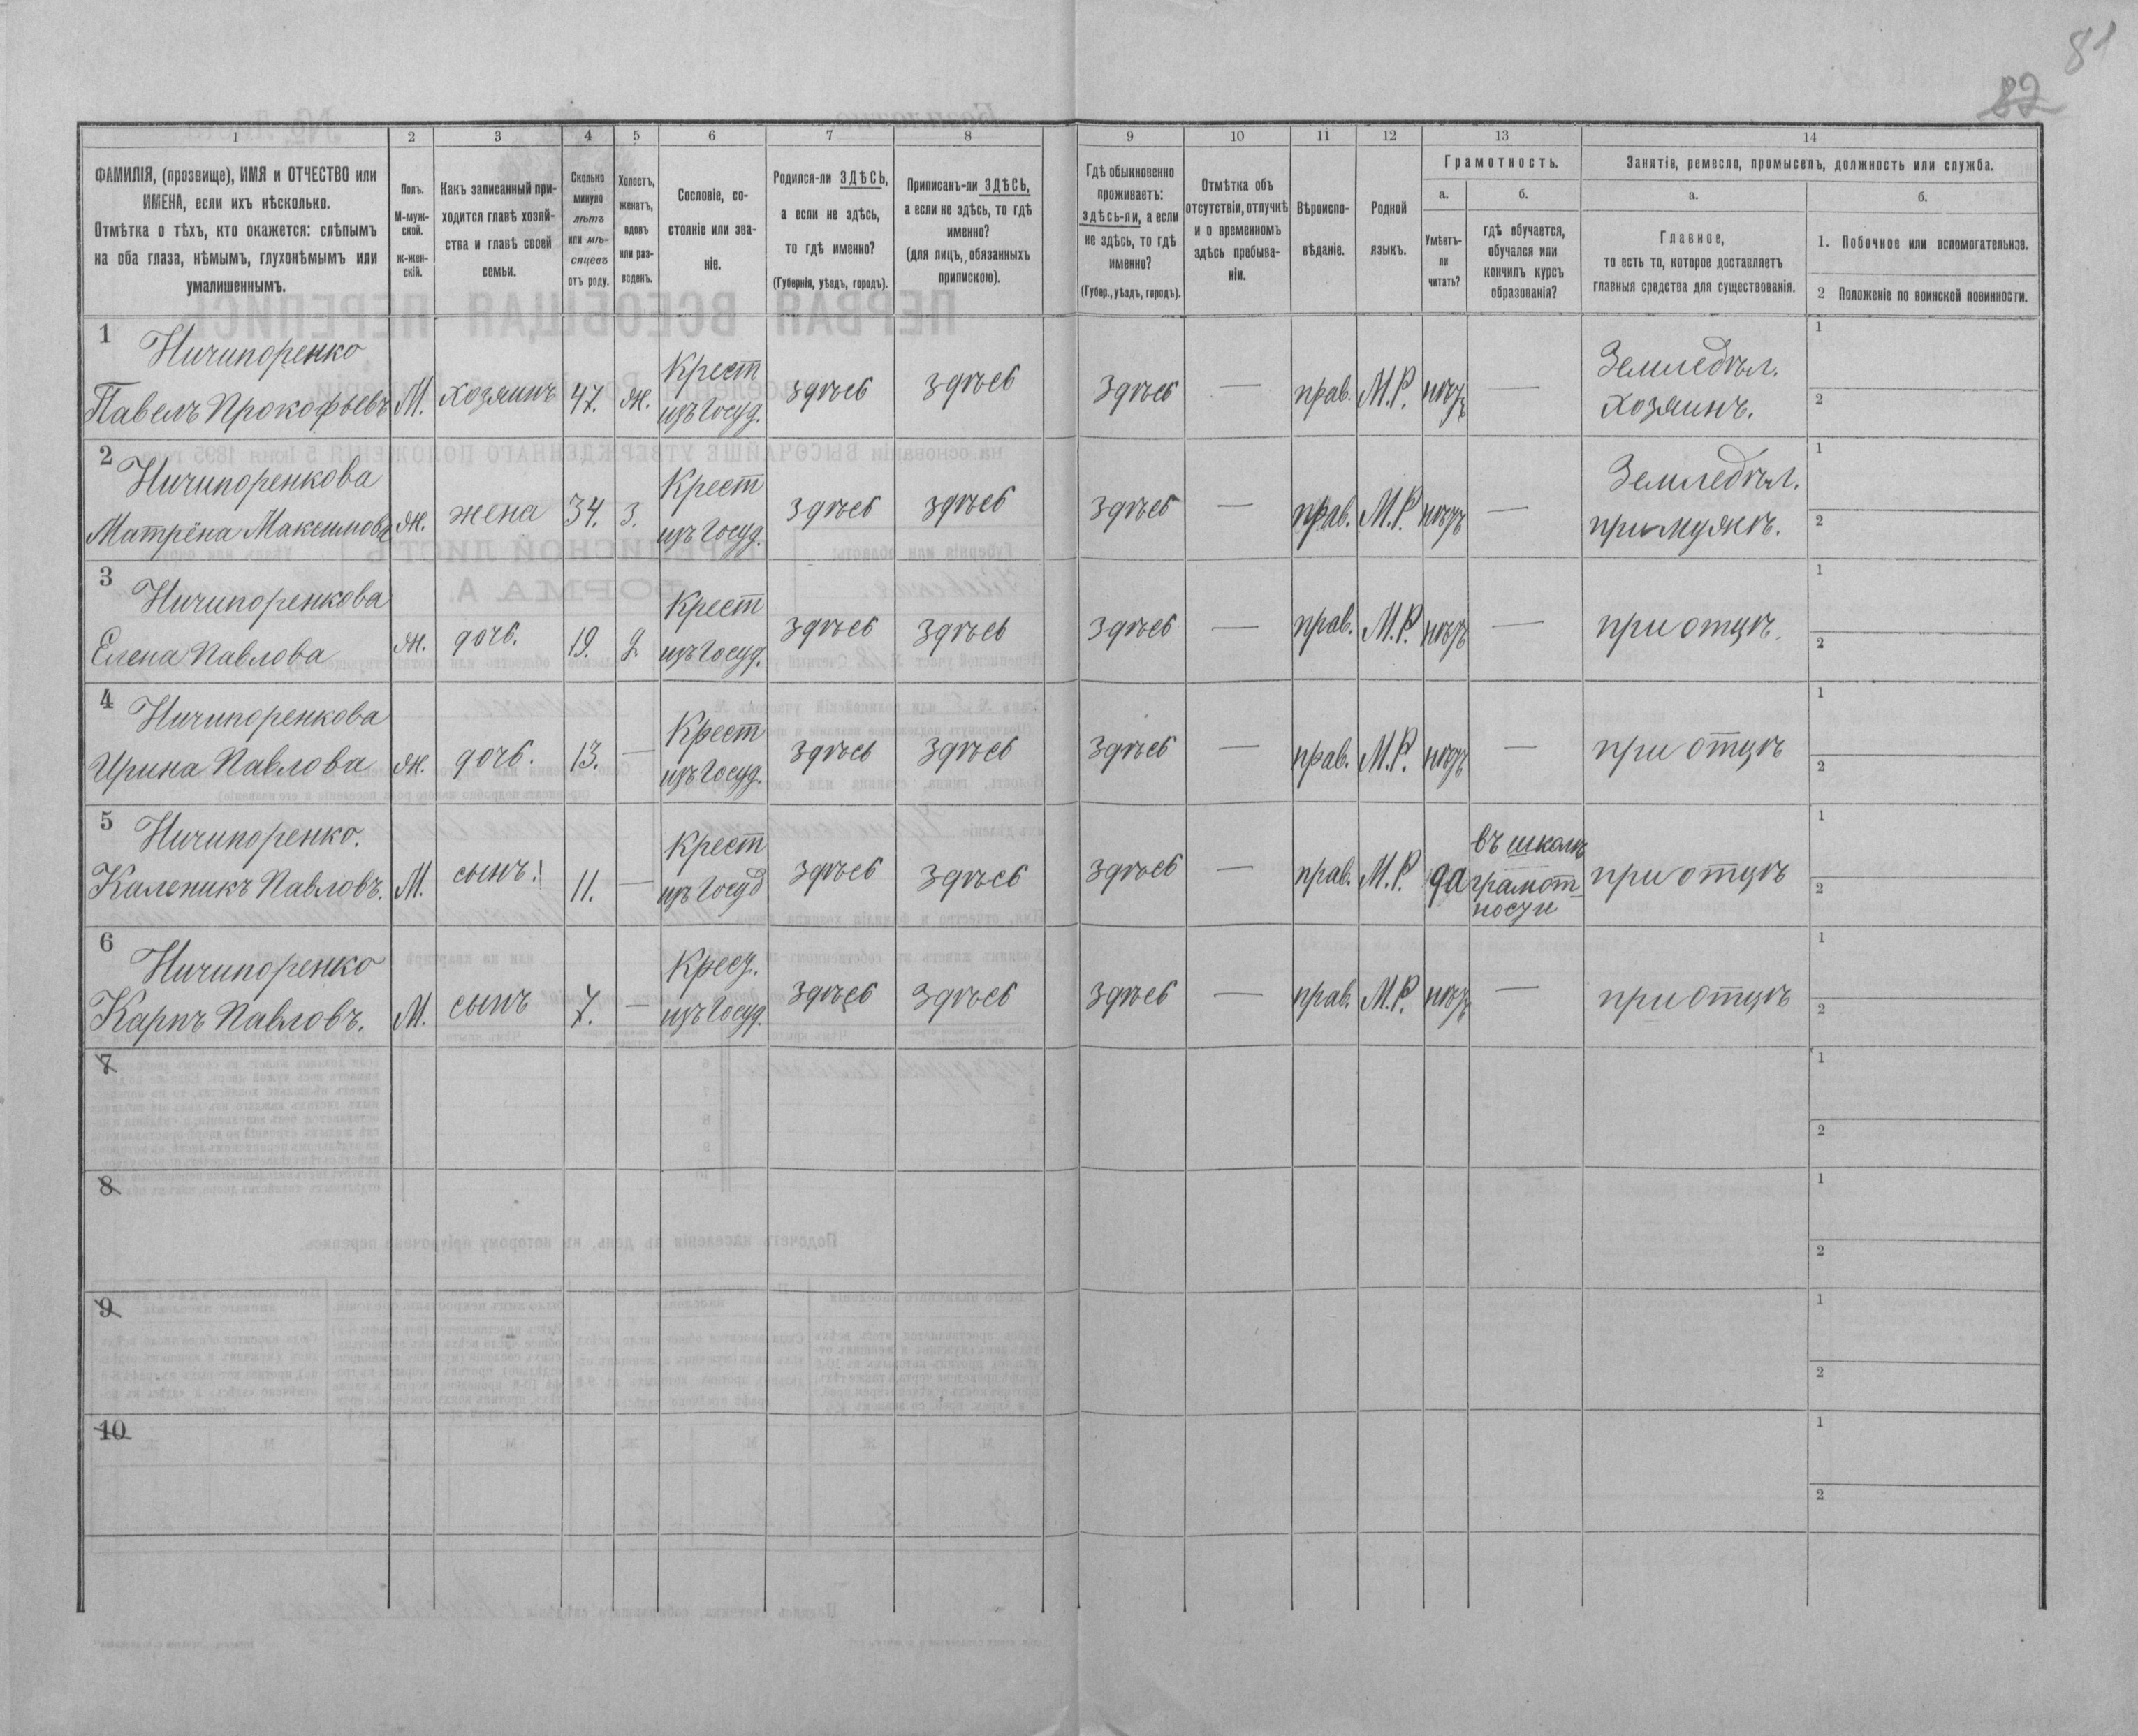 81
82
1 2 3 4 5 6 7 8 9 10 11 12 13 14
ФАМИЛІЯ, (прозвище), ИМЯ и ОТЧЕСТВО или
ИМЕНА, если ихъ нѣсколько.
Отмѣтка о тѣхъ, кто окажется: слѣпымъ
на оба глаза, нѣмымъ, глухонѣмымъ или
умалишеннымъ.
Полъ.
М-муж-
ской.
Ж-жен-
скій.
Какъ записанный при-
ходится главѣ хозяй-
ства и главѣ своей
семьи.
Сколько
минуло
лѣтъ
или мѣ-
сяцевъ
отъ роду.
Холостъ,
женатъ,
вдовъ
или раз-
веденъ.
Сословіе, со-
стояніе или зва-
ніе.
Родился-ли ЗДѢСЬ,
а если не здѣсь,
то гдѣ именно?
(Губернія, уѣздъ, городъ).
Приписанъ-ли ЗДѢСЬ,
а если не здѣсь, то гдѣ
именно?
(для лицъ, обязанныхъ
припискою).
Гдѣ обыкновенно
проживаетъ:
здѣсь-ли, а если
не здѣсь, то гдѣ
именно?
(Губер., уѣздъ, городъ).
Отмѣтка объ
отсутствіи, отлучкѣ
и о временномъ
здѣсь пребыва-
ніи.
Вѣроиспо-
вѣданіе.
Родной
языкъ.
Грамотность.
а.
Умѣетъ-
ли
читать?
б.
гдѣ обучается,
обучался или
кончилъ курсъ
образованія?
Занятіе, ремесло, промыселъ, должность или служба.
а.
Главное,
то есть то, которое доставляетъ
главныя средства для существованія.
б.
1. Побочное или вспомогательное.
2 Положеніе по воинской повинности.
1 Ничипоренко Крест Земледѣл. 1
Павелъ Прокофьевъ М. хозяинъ 47. ж. изъ Госуд. здѣсь здѣсь здѣсь — прав. М.Р. нѣтъ — хозяинъ. 2
2 Ничипоренкова Крест Земледѣл. 1
Матрёна Максимова ж. жена 34. з. изъ Госуд. здѣсь здѣсь здѣсь — прав. М.Р. нѣтъ — при мужѣ. 2
3 Ничипоренкова Крест 1
Елена Павлова ж. дочь. 19. д. изъ Госуд. здѣсь здѣсь здѣсь — прав. М.Р. нѣтъ — при отцѣ. 2
4 Ничипоренкова Крест 1
Ирина Павлова ж. дочь. 13. — изъ Госуд. здѣсь здѣсь здѣсь — прав. М.Р. нѣтъ — при отцѣ 2
5 Ничипоренко. Крест въ школѣ 1
Каленикъ Павловъ. М. сынъ. 11. — изъ Госуд здѣсь здѣсь здѣсь — прав. М.Р. да грамот- при отцѣ 2
ности
6 Ничипоренко Крест. 1
Карпъ Павловъ. М. сынъ 7. — изъ Госуд. здѣсь здѣсь здѣсь — прав. М.Р. нѣтъ — при отцѣ 2
7 1
2
8 1
2
9 1
2
10 1
2